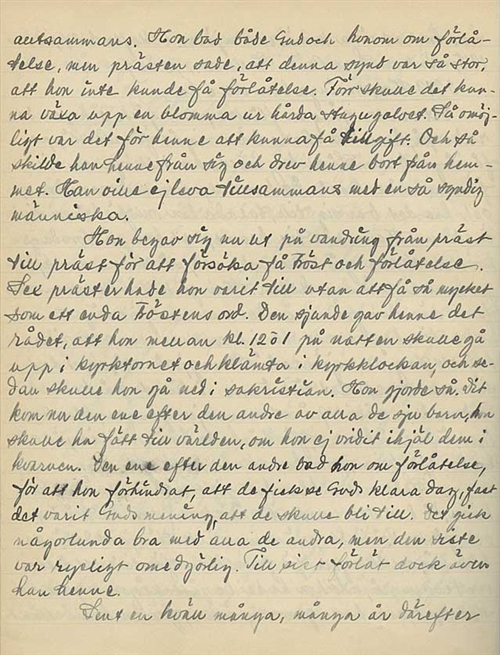 alltsammans. Hon bad både Gud och honom om förlå-
telse, men prästen sade, att denna synd var så stor,
att hon inte kunde få förlåtelse. Förr skulle det kun-
na växa upp en blomma ur hårda stugugolvet. Så omöj-
ligt var det för henne att kunna få tillgift. Och så
skilde han henne från sig och drev henne bort från hem-
met. Han ville ej leva tillsammans med en så syndig
människa.
Hon begav sig nu ut på vandring från präst
till präst för att försöka få tröst och förlåtelse.
Sex präster hade hon varit till utan att få så mycket
som ett enda tröstens ord. Den sjunde gav henne det
rådet, att hon mellan kl. 12 o 1 på natten skulle gå
upp i kyrktornet och klämta i kyrkklockan, och se-
dan skulle hon gå ned i sakristian. Hon gjorde så. Dit
kom nu den ene efter den andre av alla de sju barn, hon
skulle ha fått till världen, om hon ej vridit ihjäl dem i
kvarnen. Den ene efter den andre bad hon om förlåtelse,
för att hon förhindrat, att de fick se Guds klara dag, fast
det varit Guds mening, att de skulle bli till. Det gick
någorlunda bra med alla de andra, men den siste
var rysligt omedgörlig. Till sist förlät dock även
han henne.
Sent en kväll många, många år därefter